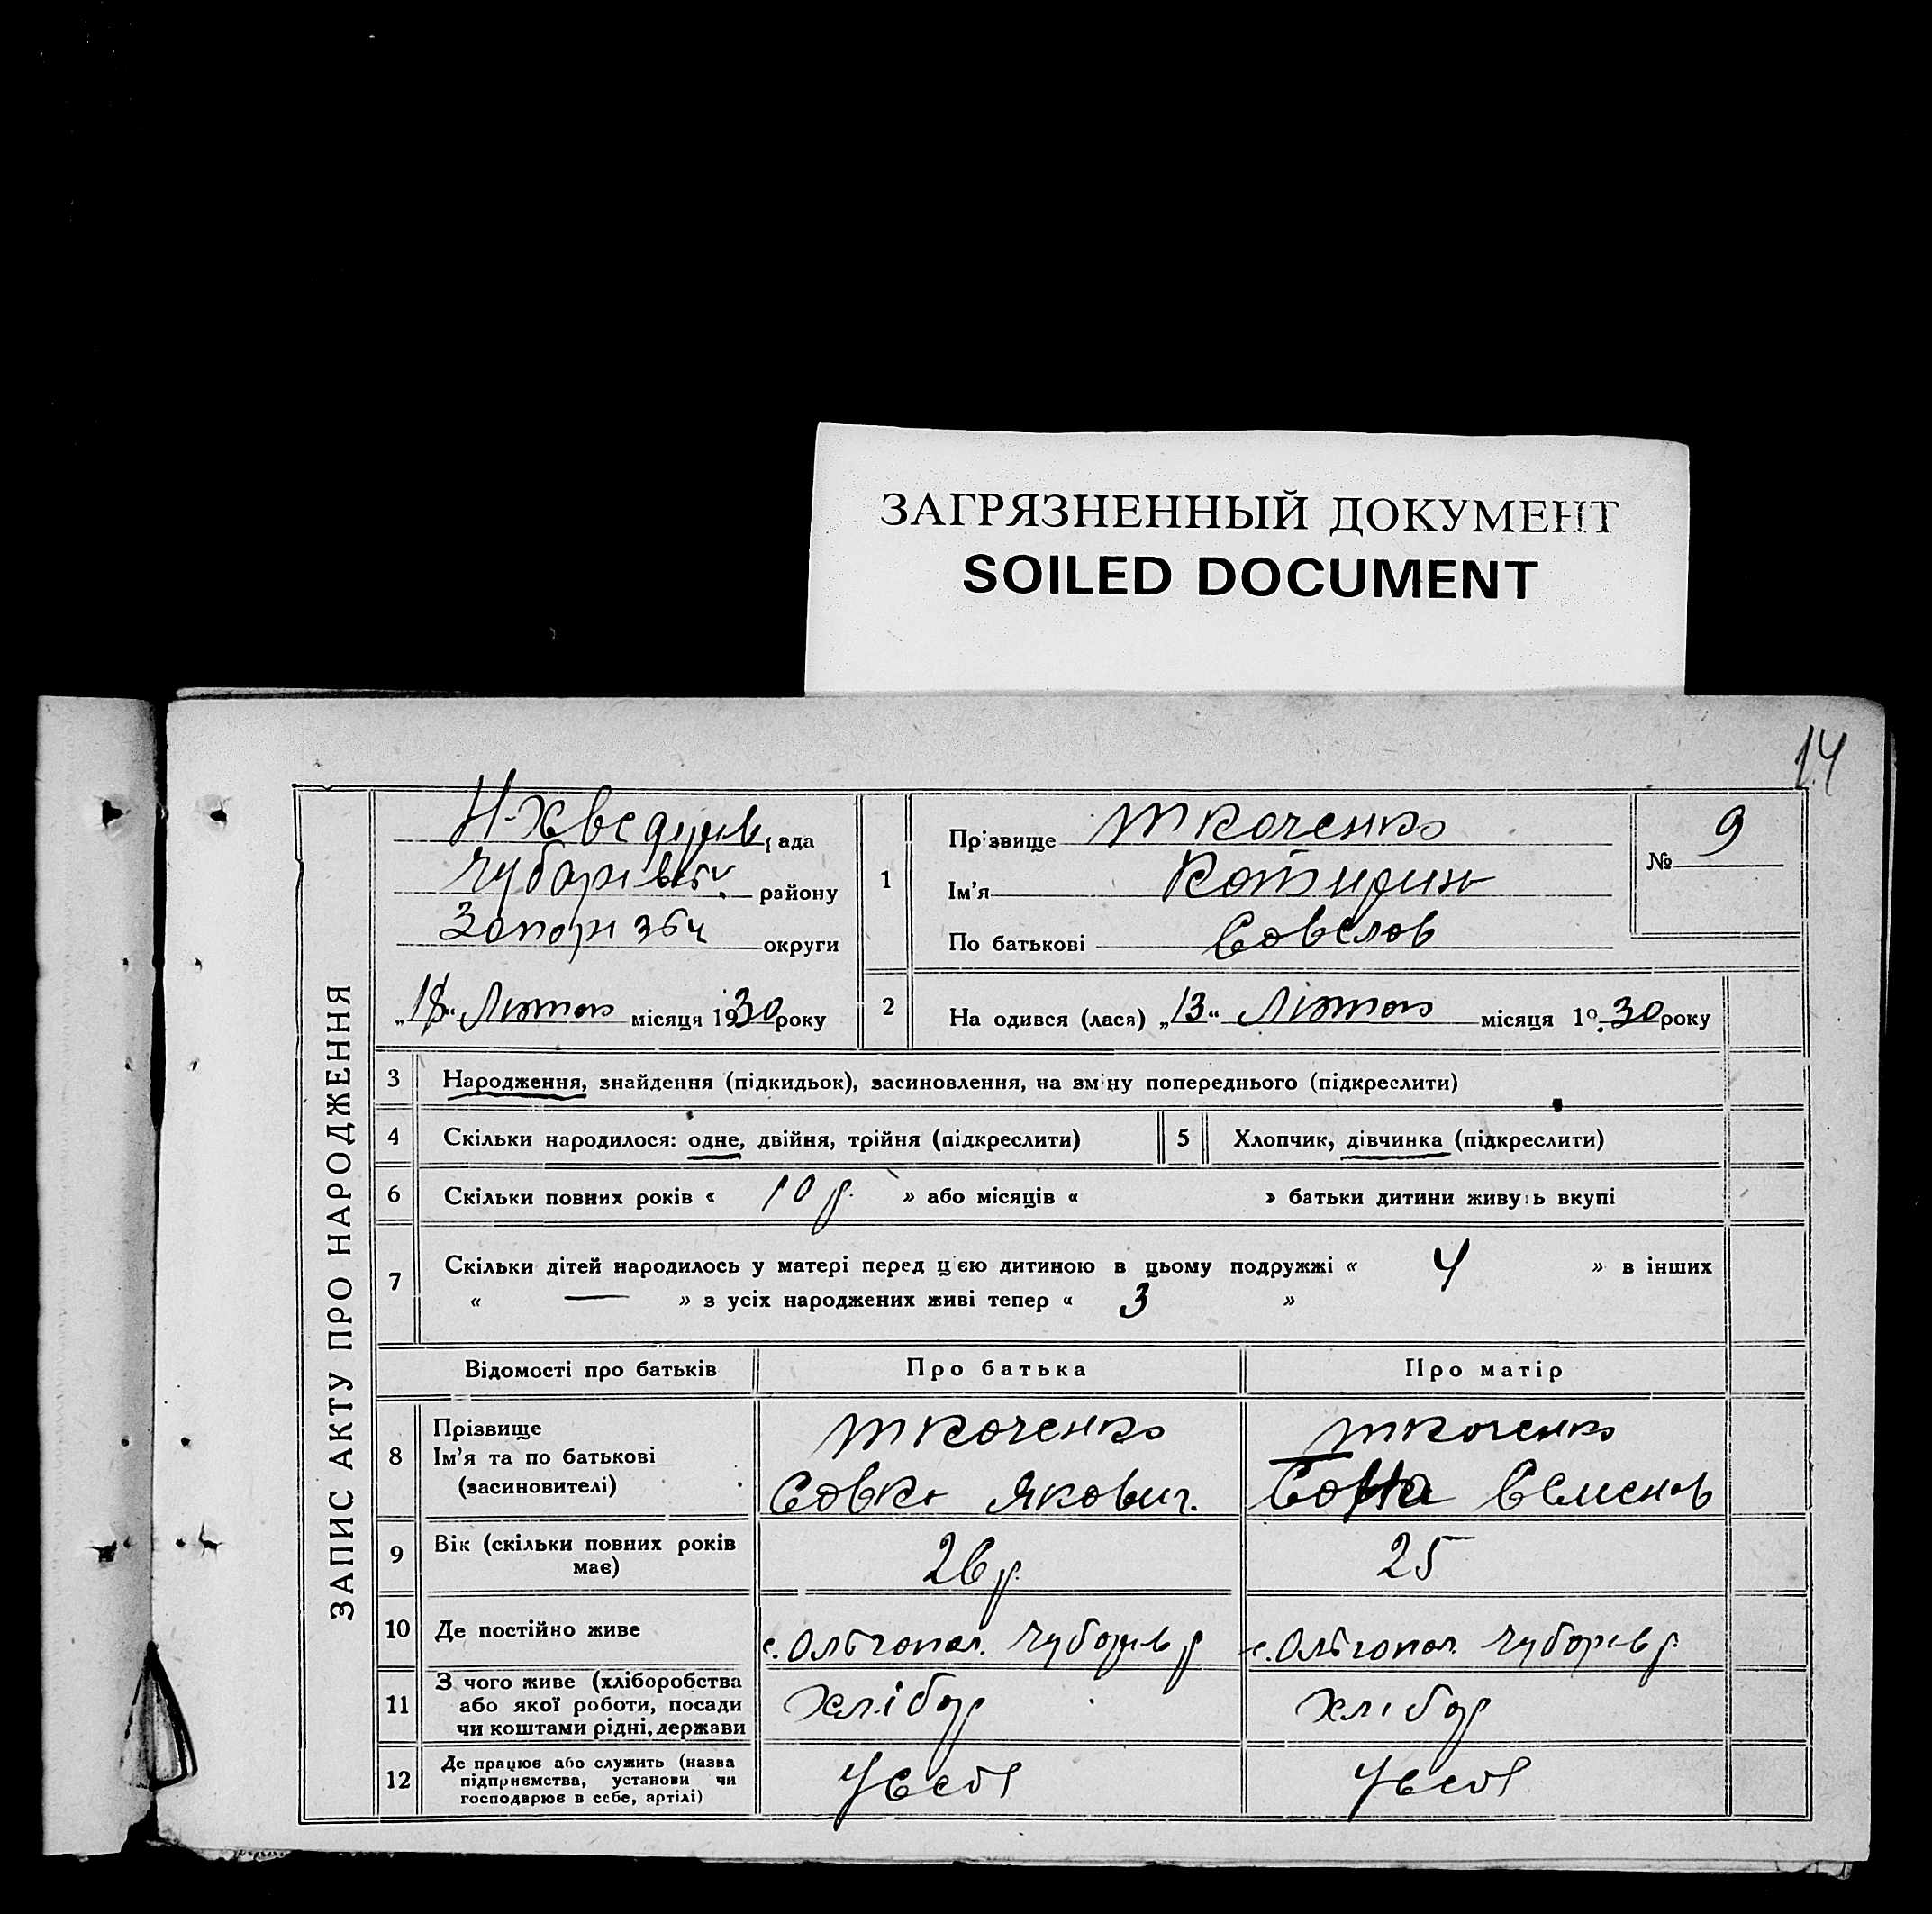 ЗАГРЯЗНЕННЫЙ ДОКУМЕНТ
SOILED DOCUMENT
14
ЗАПИС АКТУ ПРО НАРОДЖЕННЯ
рада
району
Запорізьк округи
„18“ Лютого місяця 1930 року
1
Прізвище Ткаченко
Ім'я
По батькові Савелов
№ 9
2 На одився (лася) „13“ Лютого місяця 1930 року
3 Народження, знайдення (підкидьок), засиновлення, на зміну попереднього (підкреслити)
4 Скільки народилося: одне, двійня, трійня (підкреслити) 5 Хлопчик, дівчинка (підкреслити)
6 Скільки повних років « 10 р. » або місяців « » батьки дитини живуть вкупі
7 Скільки дітей народилось у матері перед цією дитиною в цьому подружжі « 4 » в інших
« — » з усіх народжених живі тепер « 3 »
Відомості про батьків Про батька Про матір
8 Прізвище Ткаченко Ткаченко
Ім'я та по батькові
(засиновителі) Савка Якович. Семенов
9 Вік (скільки повних років має) 26 р. 25
10 Де постійно живе с. Ольгопол. Чубарів р с. Ольгопол. Чубарів р.
11 З чого живе (хліборобства
або якої роботи, посади
чи коштами рідні, держави Хлібор Хлібор
12 Де працює або служить (назва
підприємства, установи чи
господарює в себе, артілі) У себе У себе